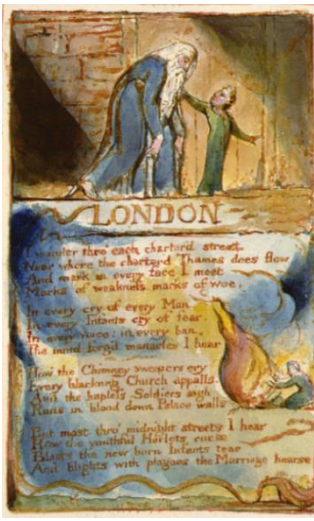 LONDON
I wander thro' each charter'd street,
Near where the charter'd Thames does flow
And mark in every face I meet
Marks of weakness, marks of woe.
In every cry of every Man
In every Infants cry of fear
In every voice: in every ban,
The mind-forg'd manacles I hear
How the Chimney sweepers cry
Every blackning Church appalls,
And the hapless Soldiers sigh
Runs in blood down Palace walls
But most thro' midnight streets I hear
How the youthful Harlots curse
Blasts the new born Infants tear
And blights with plagues the Marriage hearse